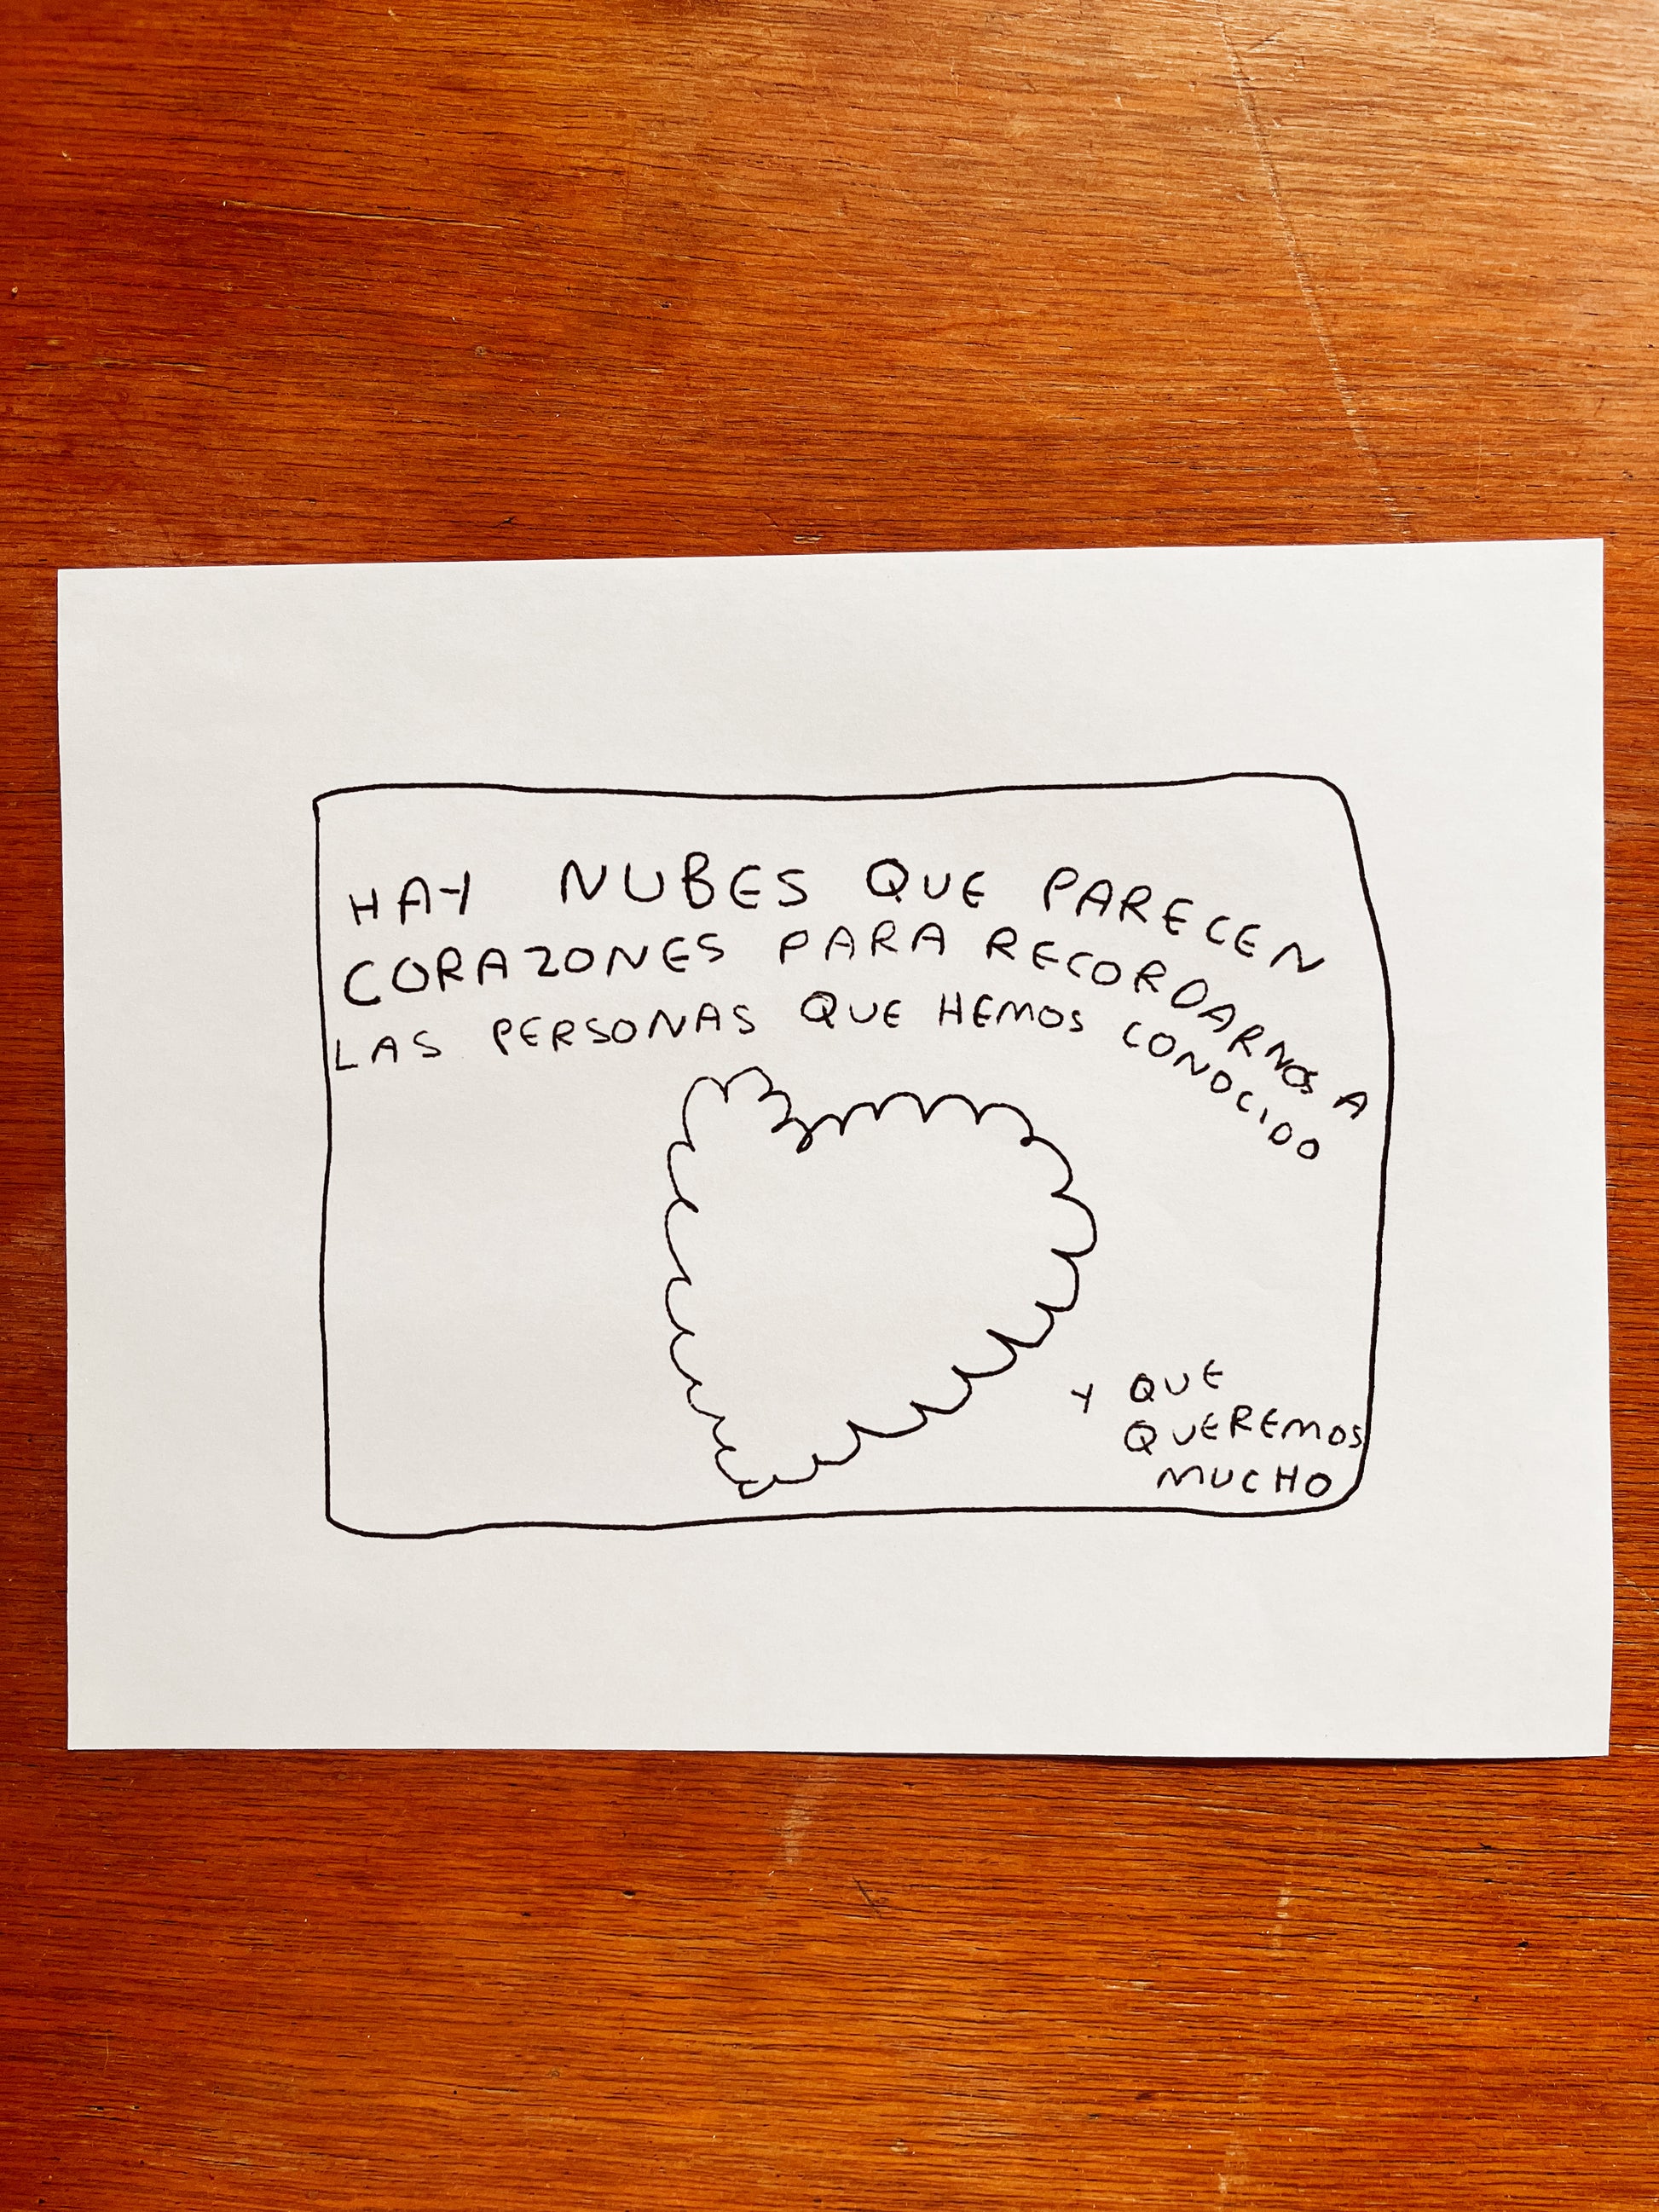 HAY NUBES QUE PARECEN
CORAZONES PARA RECORDARNOS A
LAS PERSONAS QUE HEMOS CONOCIDO
Y QUE
QUEREMOS
MUCHO